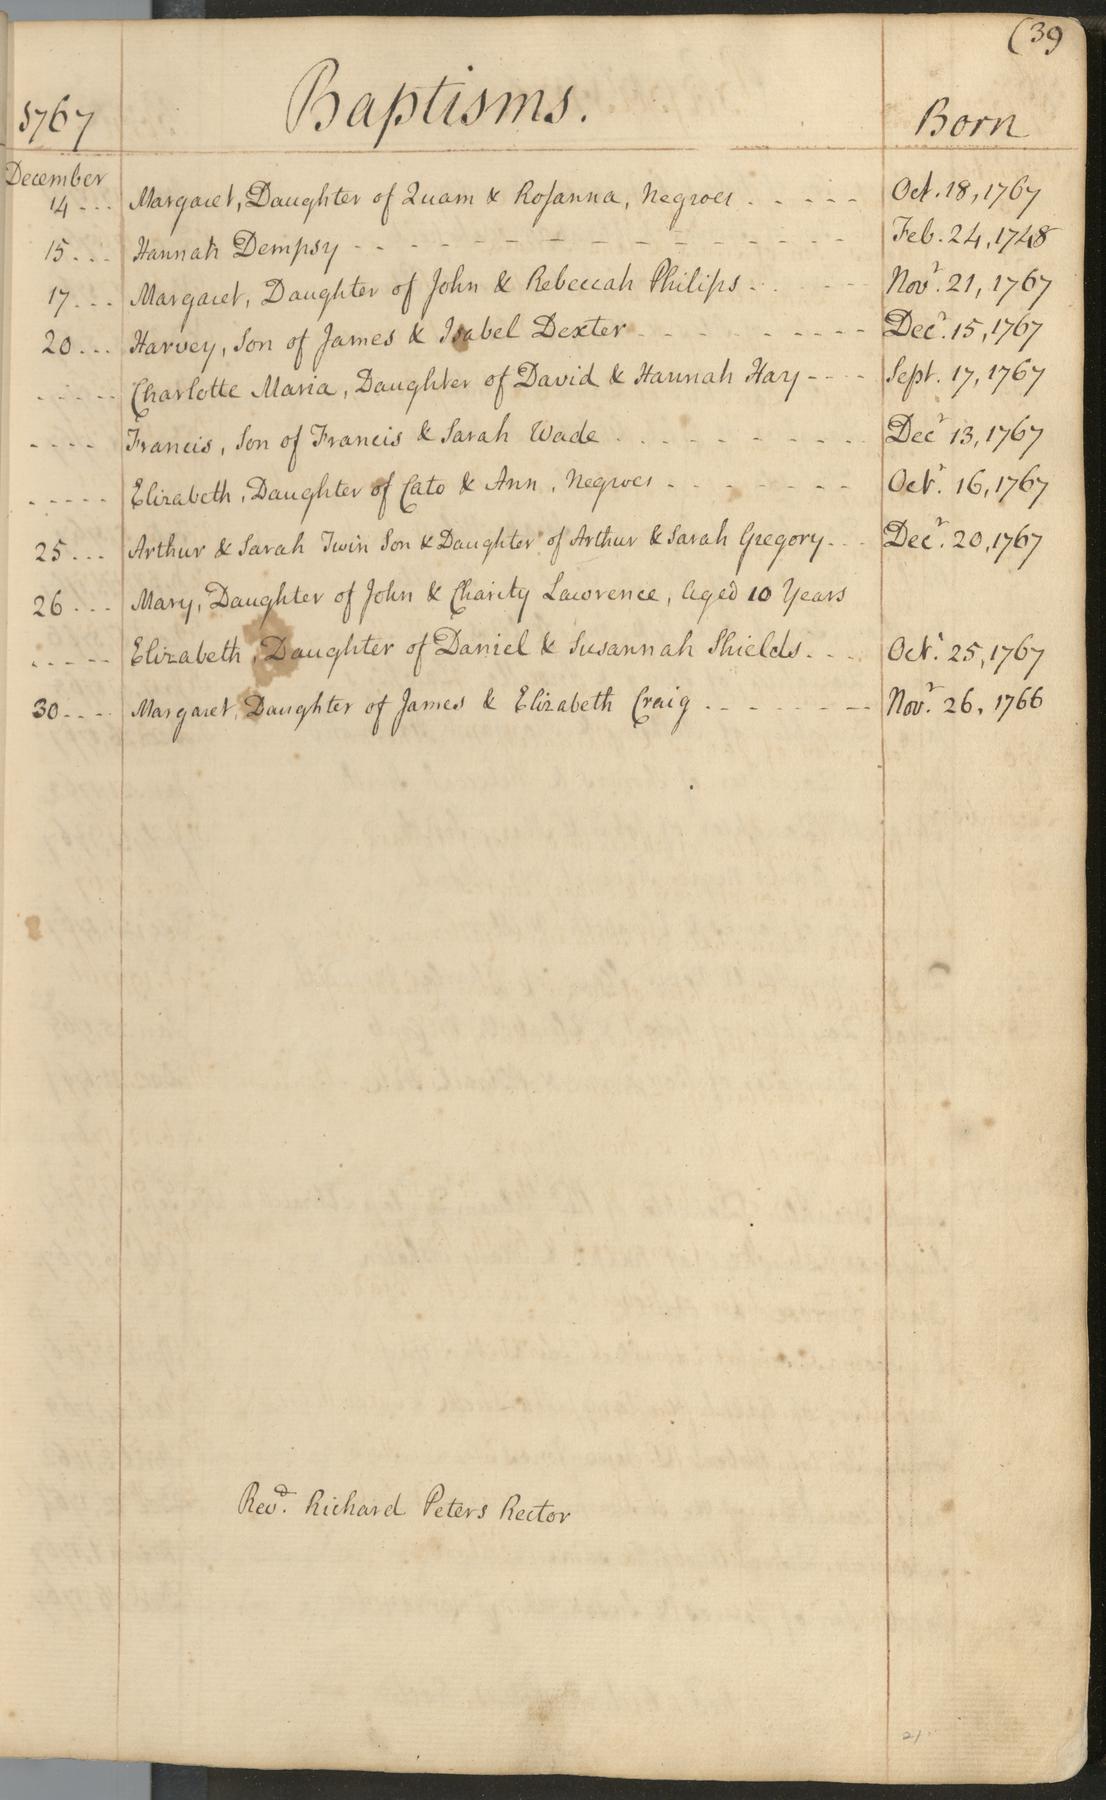 (39
1767 Baptisms. Born
December
14 - - - Margaret, Daughter of Quam & Rosanna, Negroes - - - - - Oct. 18, 1767
15 - - - Hannah Dempsy - - - - - - - - - - - - - Feb. 24, 1748
17 - - - Margaret, Daughter of John & Rebeccah Philips - - - - - Novr. 21, 1767
20 - - - Harvey, Son of James & Isabel Dexter - - - - - - - - Decr. 15, 1767
- - - - - Charlotte Maria, Daughter of David & Hannah Hay - - - - Sept. 17, 1767
- - - - Francis, Son of Francis & Sarah Wade - - - - - - - - - Decr 13, 1767
- - - - - Elizabeth, Daughter of Cato & Ann, Negroes - - - - - - - Octr. 16, 1767
25 - - - Arthur & Sarah Twin Son & Daughter of Arthur & Sarah Gregory - - - Decr. 20, 1767
26 - - - Mary, Daughter of John & Charity Lawrence, aged 10 Years
- - - - - Elizabeth, Daughter of Daniel & Susannah Shields - - - Octr. 25, 1767
30 - - - - Margaret, Daughter of James & Elizabeth Craig - - - - - - - - Novr. 26, 1766
Revd. Richard Peters Rector